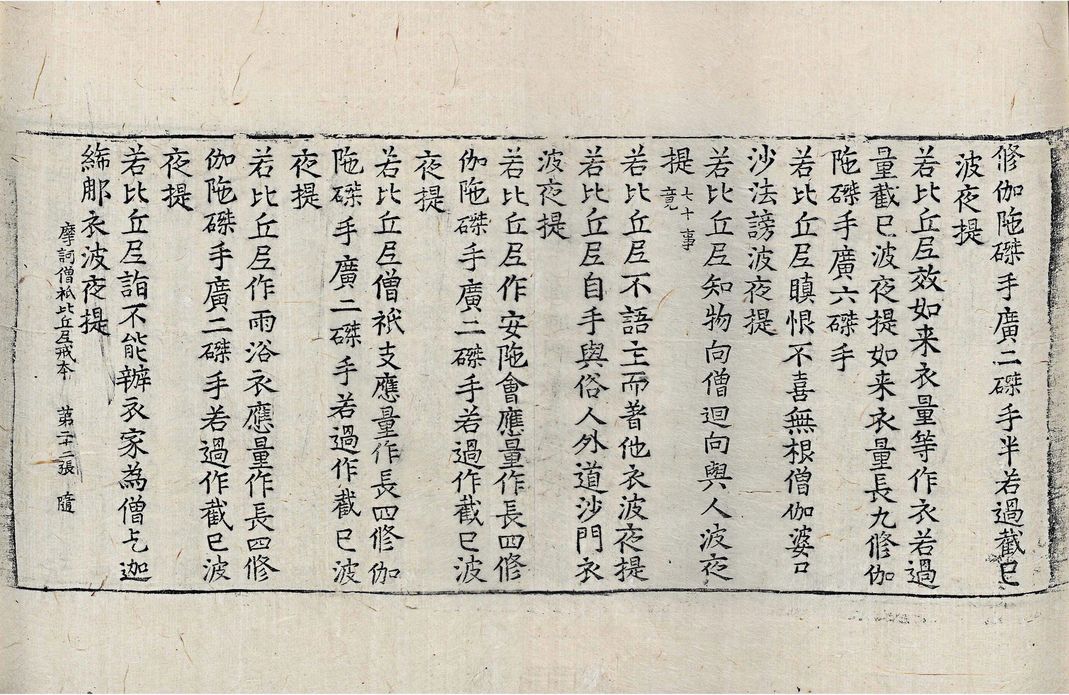 修伽陁磔手廣二磔手半若過截已
波夜提
若比丘尼效如来衣量等作衣若過
量截已波夜提如来衣量長九修伽
陁磔手廣六磔手
若比丘尼瞋恨不喜無根僧伽婆尸
沙法謗波夜提
若比丘尼知物向僧迴向與人波夜
提 七十事竟
若比丘尼不語主而著他衣波夜提
若比丘尼自手與俗人外道沙門衣
波夜提
若比丘尼作安陁會應量作長四修
伽陁磔手廣二磔手若過作截已波
夜提
若比丘尼僧祇支應量作長四修伽
陁磔手廣二磔手若過作截已波
夜提
若比丘尼作雨浴衣應量作長四修
伽陁磔手廣二磔手若過作截已波
夜提
若比丘尼詣不能辦衣家為僧乞迦
絺那衣波夜提
摩訶僧祇比丘尼戒本 苐二十二張 隨